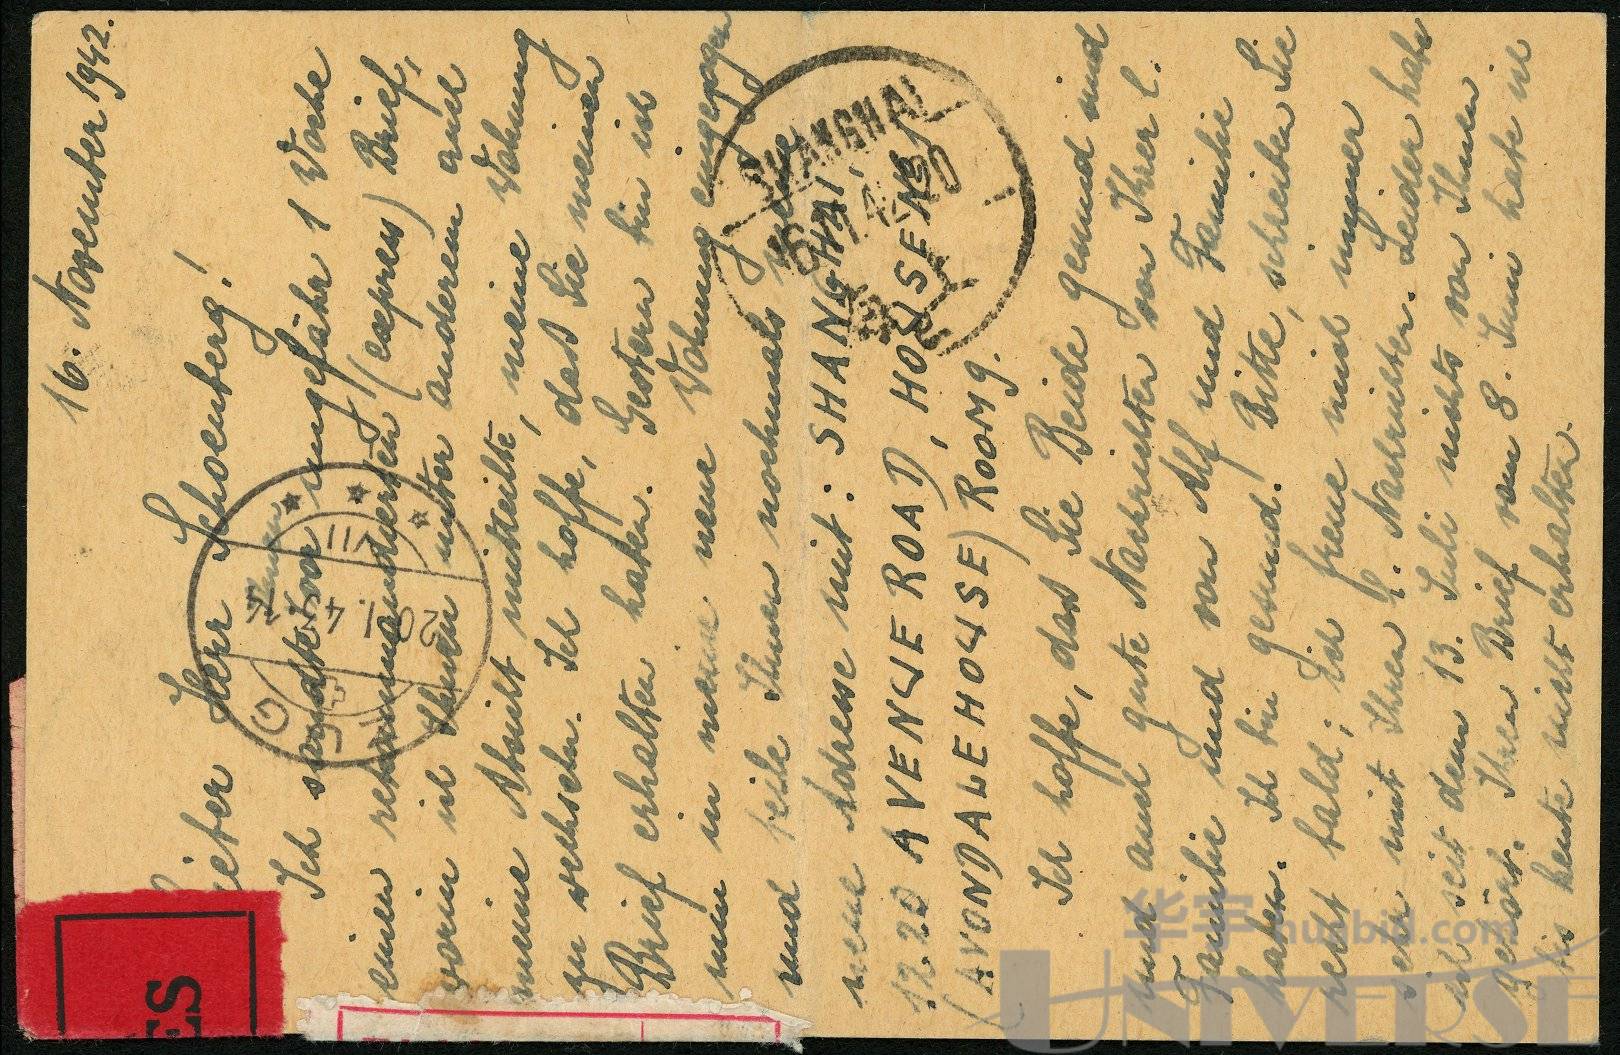 16. November 1942.
Lieber Herr Schoenberg!
Ich sandte vor ungefähr 1 Woche
einen rekommandierten (express) Brief,
worin ich Ihnen unter anderem auch
meine Absicht mitteilte, meine Wohnung
zu wechseln. Ich hoffe, daß Sie meinen
Brief erhalten haben. Gestern bin ich
nun in meine neue Wohnung eingezogen
und teile Ihnen nochmals meine
neue Adresse mit: SHANGHAI,
1220 AVENUE ROAD, HOUSE N
(AVONDALEHOUSE) ROOM 9.
Ich hoffe, dass Sie Beide gesund sind
und auch gute Nachrichten von Ihrer l.
Familie und von Alf und Familie
haben. Ich bin gesund. Bitte, schreiben Sie
recht bald; ich freue mich immer
sehr mit Ihren l. Nachrichten. Leider habe
ich seit dem 13. Juli nichts von Ihnen
gehört. Ihren Brief vom 8. Juni habe ich
bis heute nicht erhalten.
SHANGHAI
16.11.42 20
20.1.4
VIII
G
ES
华宇 huabid.com
UNIVERSE